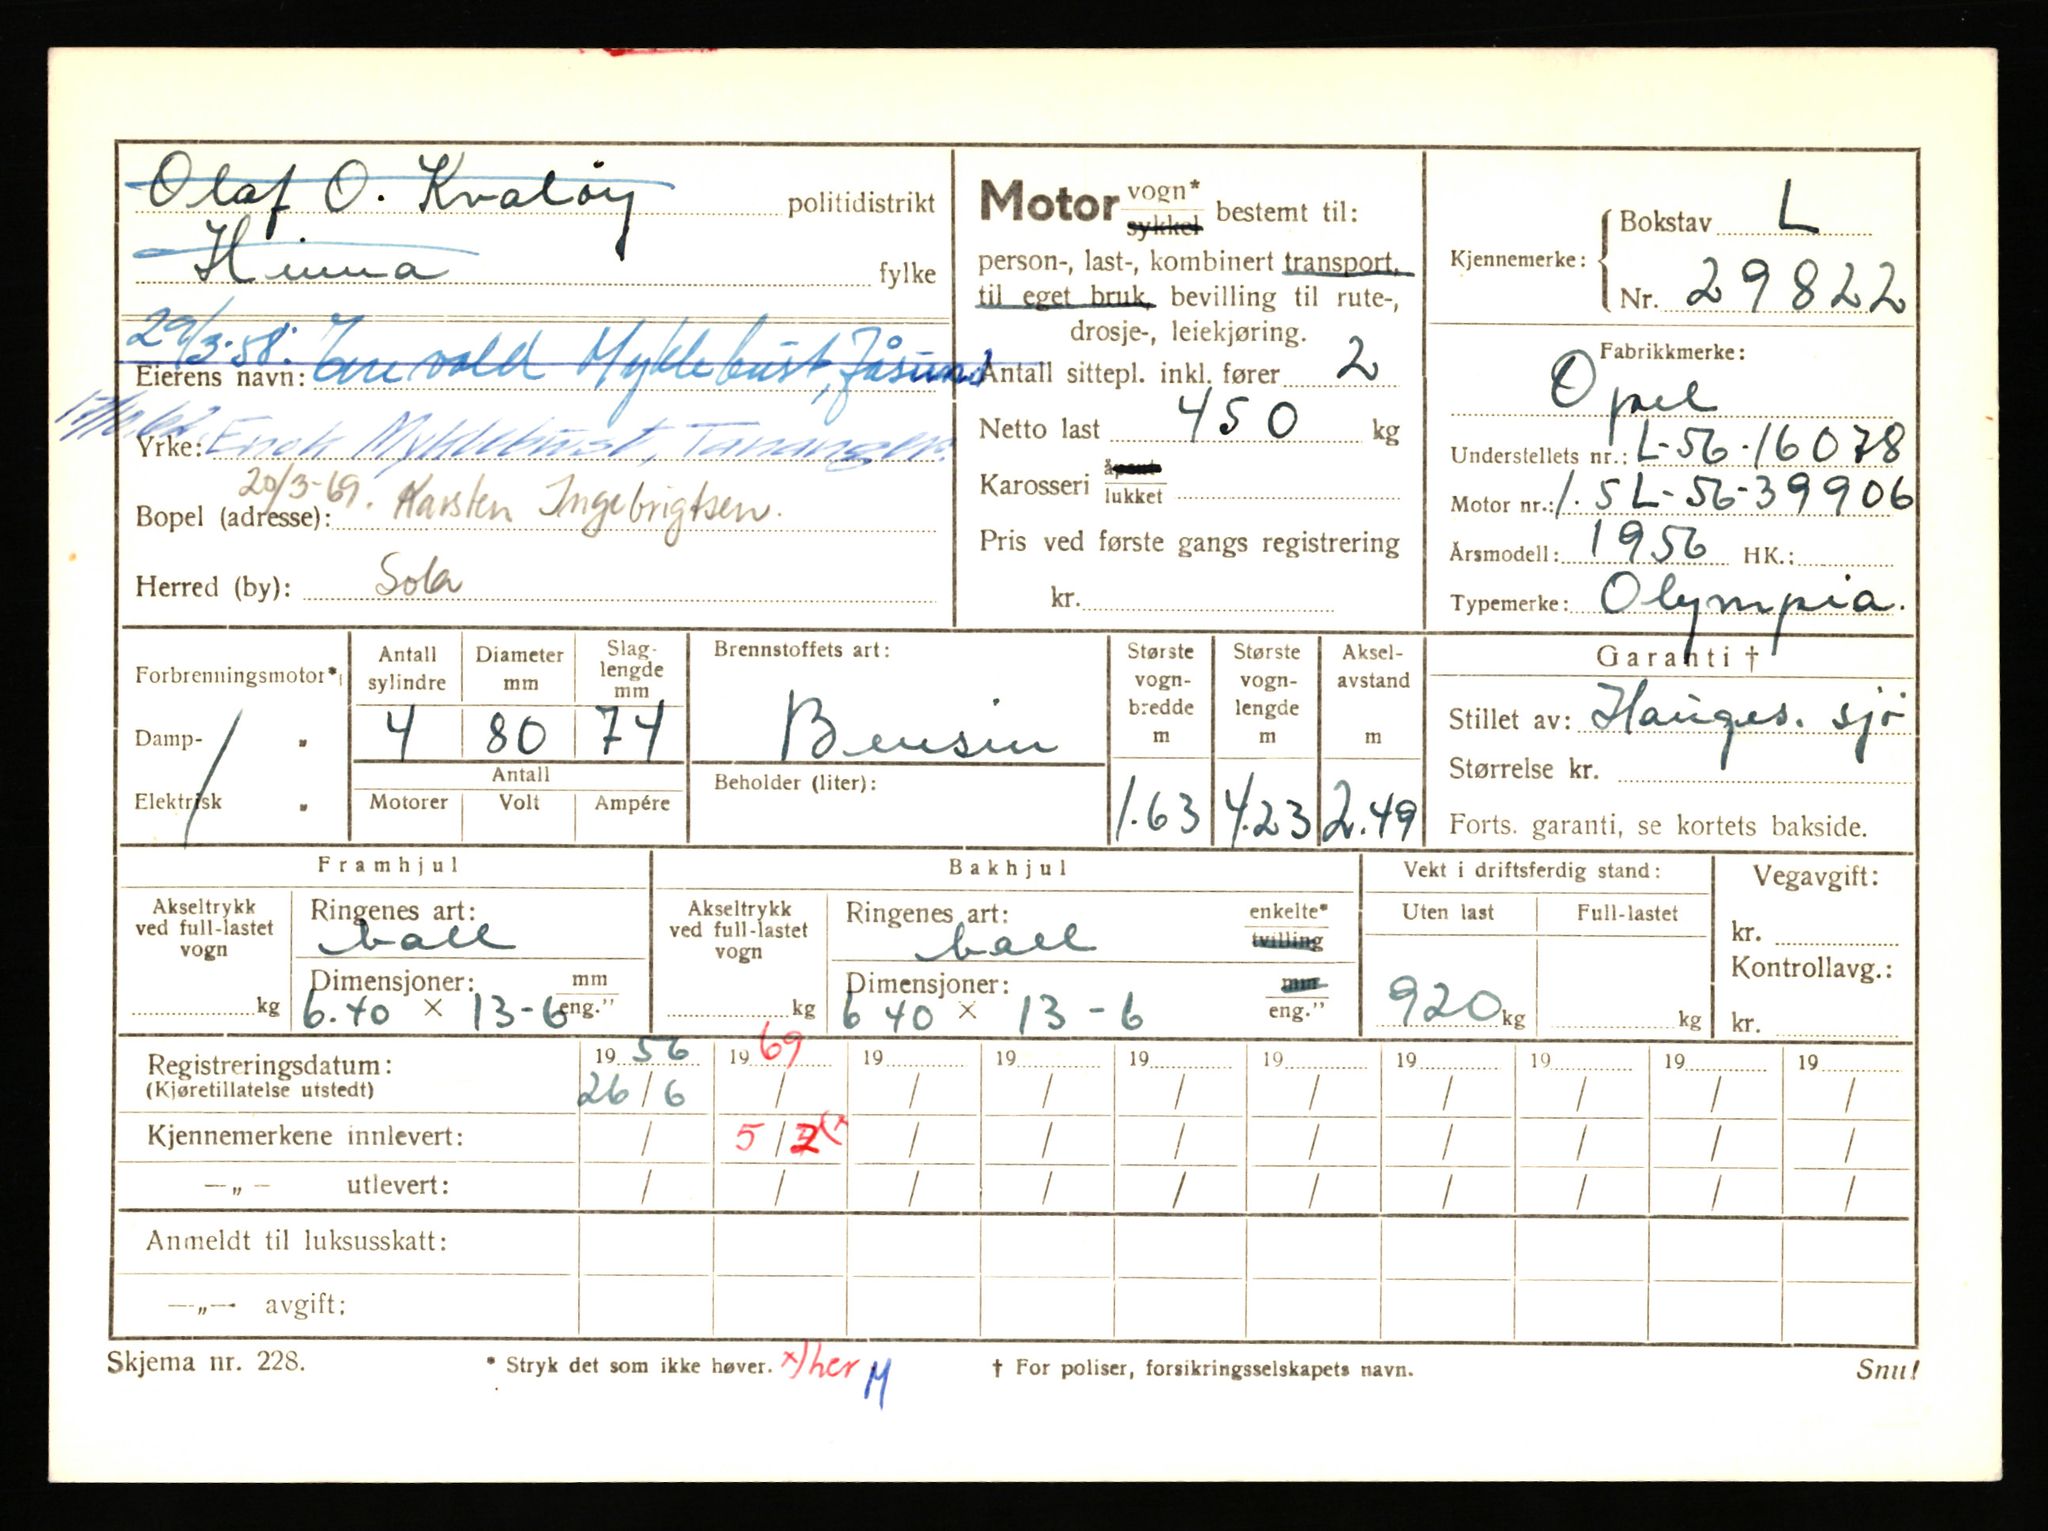 Olaf O. Kvaløy politidistrikt
Hinna fylke
29/3-58. Myklebust, Jåsund
Eierens navn:
Yrke: Enok Myklebust, Tananger.
20/3-69. Karsten Ingebrigtsen.
Bopel (adresse):
Herred (by): Sola
Motor vogn* sykkel bestemt til:
person-, last-, kombinert transport,
til eget bruk, bevilling til rute-,
drosje-, leiekjøring.
Antall sittepl. inkl. fører 2
Netto last 450 kg
Karosseri åpent lukket
Pris ved første gangs registrering
kr.
Kjennemerke: Bokstav L
Nr. 29822
Fabrikkmerke:
Opel
Understellets nr.: L-56-16078
Motor nr.: 1.5L-56-39906
Årsmodell: 1956 HK.:
Typemerke: Olympia.
Forbrenningsmotor*
Damp- „
Elektrisk „
Antall sylindre 4
Diameter mm 80
Slag-lengde mm 74
Antall
Motorer Volt Ampére
Brennstoffets art:
Bensin
Beholder (liter):
Største vogn-bredde m 1.63
Største vogn-lengde m 4.23
Aksel-avstand m 2.49
Garanti †
Stillet av: Hauges. sjø
Størrelse kr.
Forts. garanti, se kortets bakside.
Framhjul
Akseltrykk ved full-lastet vogn
kg
Ringenes art:
ball
Dimensjoner: mm eng."
6.40 × 13-6
Bakhjul
Akseltrykk ved full-lastet vogn
kg
Ringenes art: enkelte* tvilling
ball
Dimensjoner: mm eng."
6 40 × 13-6
Vekt i driftsferdig stand:
Uten last Full-lastet
920 kg kg
Vegavgift:
kr.
Kontrollavg.:
kr.
Registreringsdatum: 19 56 19 69 19 19 19 19 19 19 19 19
(Kjøretillatelse utstedt) 26/6 / / / / / / / / /
Kjennemerkene innlevert: / 5/2 x) / / / / / / / /
—„— utlevert: / / / / / / / / / /
Anmeldt til luksusskatt:
—„— avgift:
Skjema nr. 228. * Stryk det som ikke høver. x) her M † For poliser, forsikringsselskapets navn. Snu!